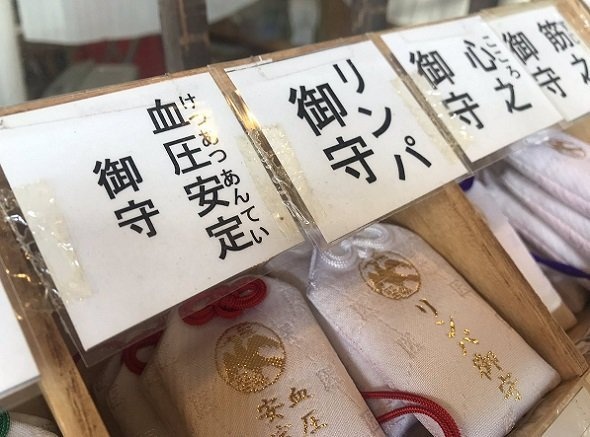 血圧安定
けつあつあんてい
御守
リンパ
御守
心之
こころ
御守
筋之
御守
血圧
安定
リンパ御守